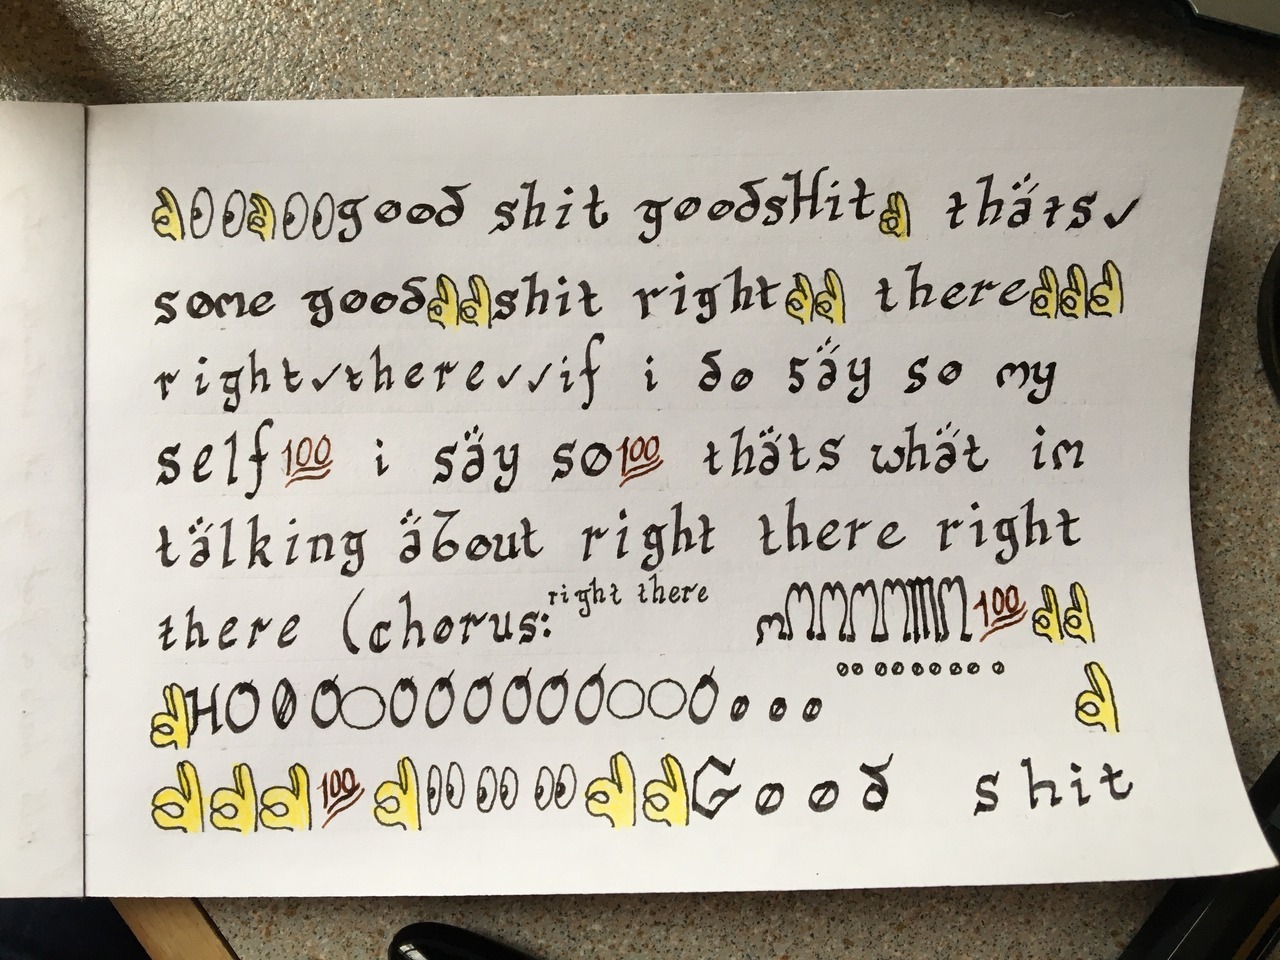 👌👀👌👀good shit goodsHit👌 thäts✔
some good👌👌shit right👌👌 there👌👌👌
right✔there✔✔if i do säy so my
self💯 i säy so💯 thäts whät im
tälking äbout right there right
there (chorus: right there mMMMMMM💯👌👌
👌HO0OOOOOOOOOOOooo ooooooooo 👌
👌👌👌💯👌👀👀👀👌👌Good shit